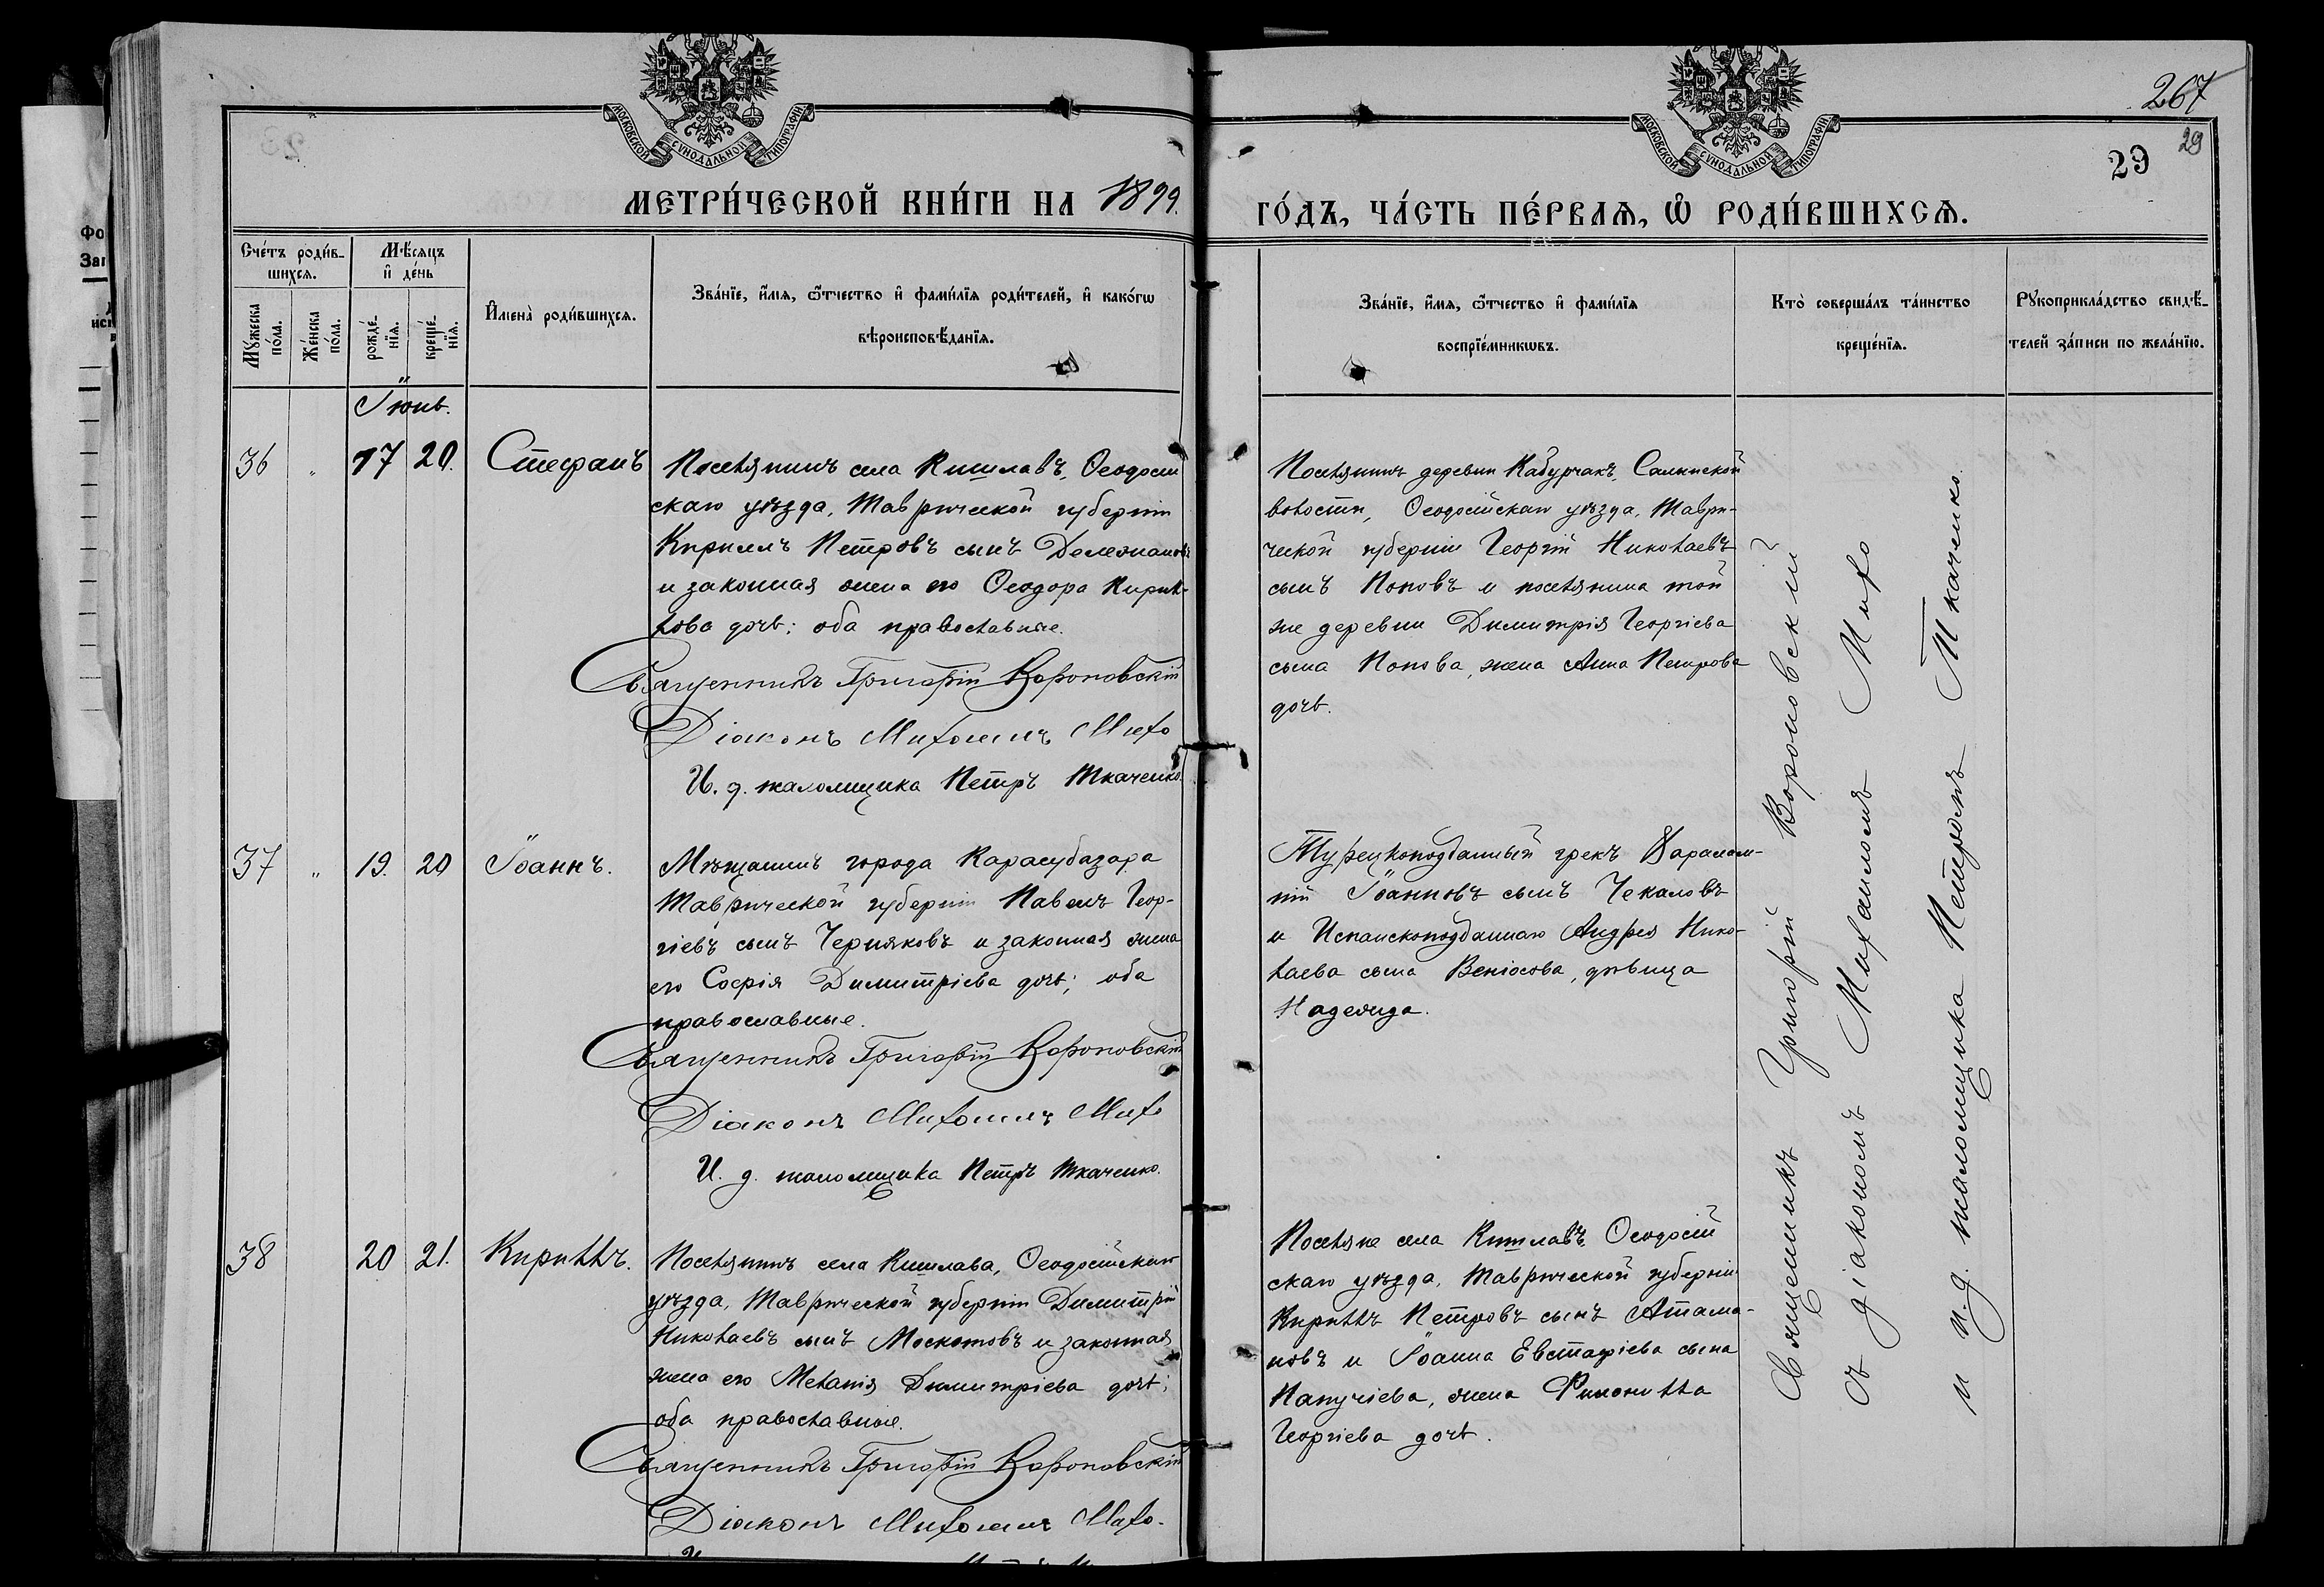 267
29
29
МОСКОВСКОЙ СѴНОДАЛЬНОЙ ТИПОГРАФІИ
МОСКОВСКОЙ СѴНОДАЛЬНОЙ ТИПОГРАФІИ
МЕТРИ́ЧЕСКОЙ КНИ́ГИ НА 1899.
ГО́ДЪ, ЧА́СТЬ ПЕ́РВАѦ, Ѽ РОДИ́ВШИХСѦ.
Сче́тъ роди́в-
шихсѧ.
Мꙋ́жеска
по́ла.
Же́нска
по́ла.
Мѣ́сѧцъ
и҆ де́нь
рожде́-
нїѧ.
креще́-
нїѧ.
И҆мена̀ роди́вшихсѧ.
Зва́нїе, и҆́мѧ, ѻ҆́тчество и҆ фами́лїѧ роди́телей, и҆ како́гѡ
вѣроисповѣ́данїѧ.
Зва́нїе, и҆́мѧ, ѻ҆́тчество и҆ фами́лїѧ
воспрїе́мникѡвъ.
Кто̀ соверша́лъ та́инство
креще́нїѧ.
Рꙋкоприкла́дство свидѣ́-
телей за́писи по жела́нїю.
Іюнь.
36 " 17 20. Стефанъ
Поселянинъ села Кишлавъ, Ѳеодосій
скаго уѣзда, Таврической губерніи
Кириллъ Петровъ сынъ Дележановъ
и законная жена его Ѳеодора Кирил-
лова дочь; оба православные.
Священникъ Григорій Вороновскій
Діаконъ Михаилъ Михо
И. д. псаломщика Петръ Ткаченко.
Поселянинъ деревни Кабурчакъ, Салынской
волости, Ѳеодосійскаго уѣзда, Таври-
ческой губерніи Георгій Николаевъ
сынъ Поповъ и поселянина той
же деревни Димитрія Георгіева
сына Попова, жена Анна Петрова
дочь.
37 " 19. 20 Іоаннъ.
Мѣщанинъ города Карасубазара
Таврической губерніи Павелъ Геор-
гіевъ сынъ Черняковъ и законная жена
его Софія Димитріева дочь; оба
православные.
Священникъ Григорій Вороновскій
Діаконъ Михаилъ Михо
И. д. псаломщика Петръ Ткаченко.
Турецкоподданный грекъ Харалам-
пій Іоанновъ сынъ Чекаловъ
и Испанскоподданнаго Андрея Нико-
лаева сына Веніосова, дѣвица
Надежда.
38 20 21. Кириллъ.
Поселянинъ села Кишлава, Ѳеодосійскаго
уѣзда, Таврической губерніи Димитрій
Николаевъ сынъ Москотовъ и законная
жена его Меланія Димитріева дочь;
оба православные.
Священникъ Григорій Вороновскій
Діаконъ Михаилъ Михо.
Поселяне села Кишлавъ, Ѳеодосій
скаго уѣзда, Таврической губерніи
Кириллъ Петровъ сынъ Атама-
новъ и Іоанна Евстафіева сына
Папучіева, жена Филонилла
Георгіева дочь.
Священникъ Григорій Вороновскій
съ діакономъ Михаиломъ Михо
и и.д. псаломщика Петромъ Ткаченко.